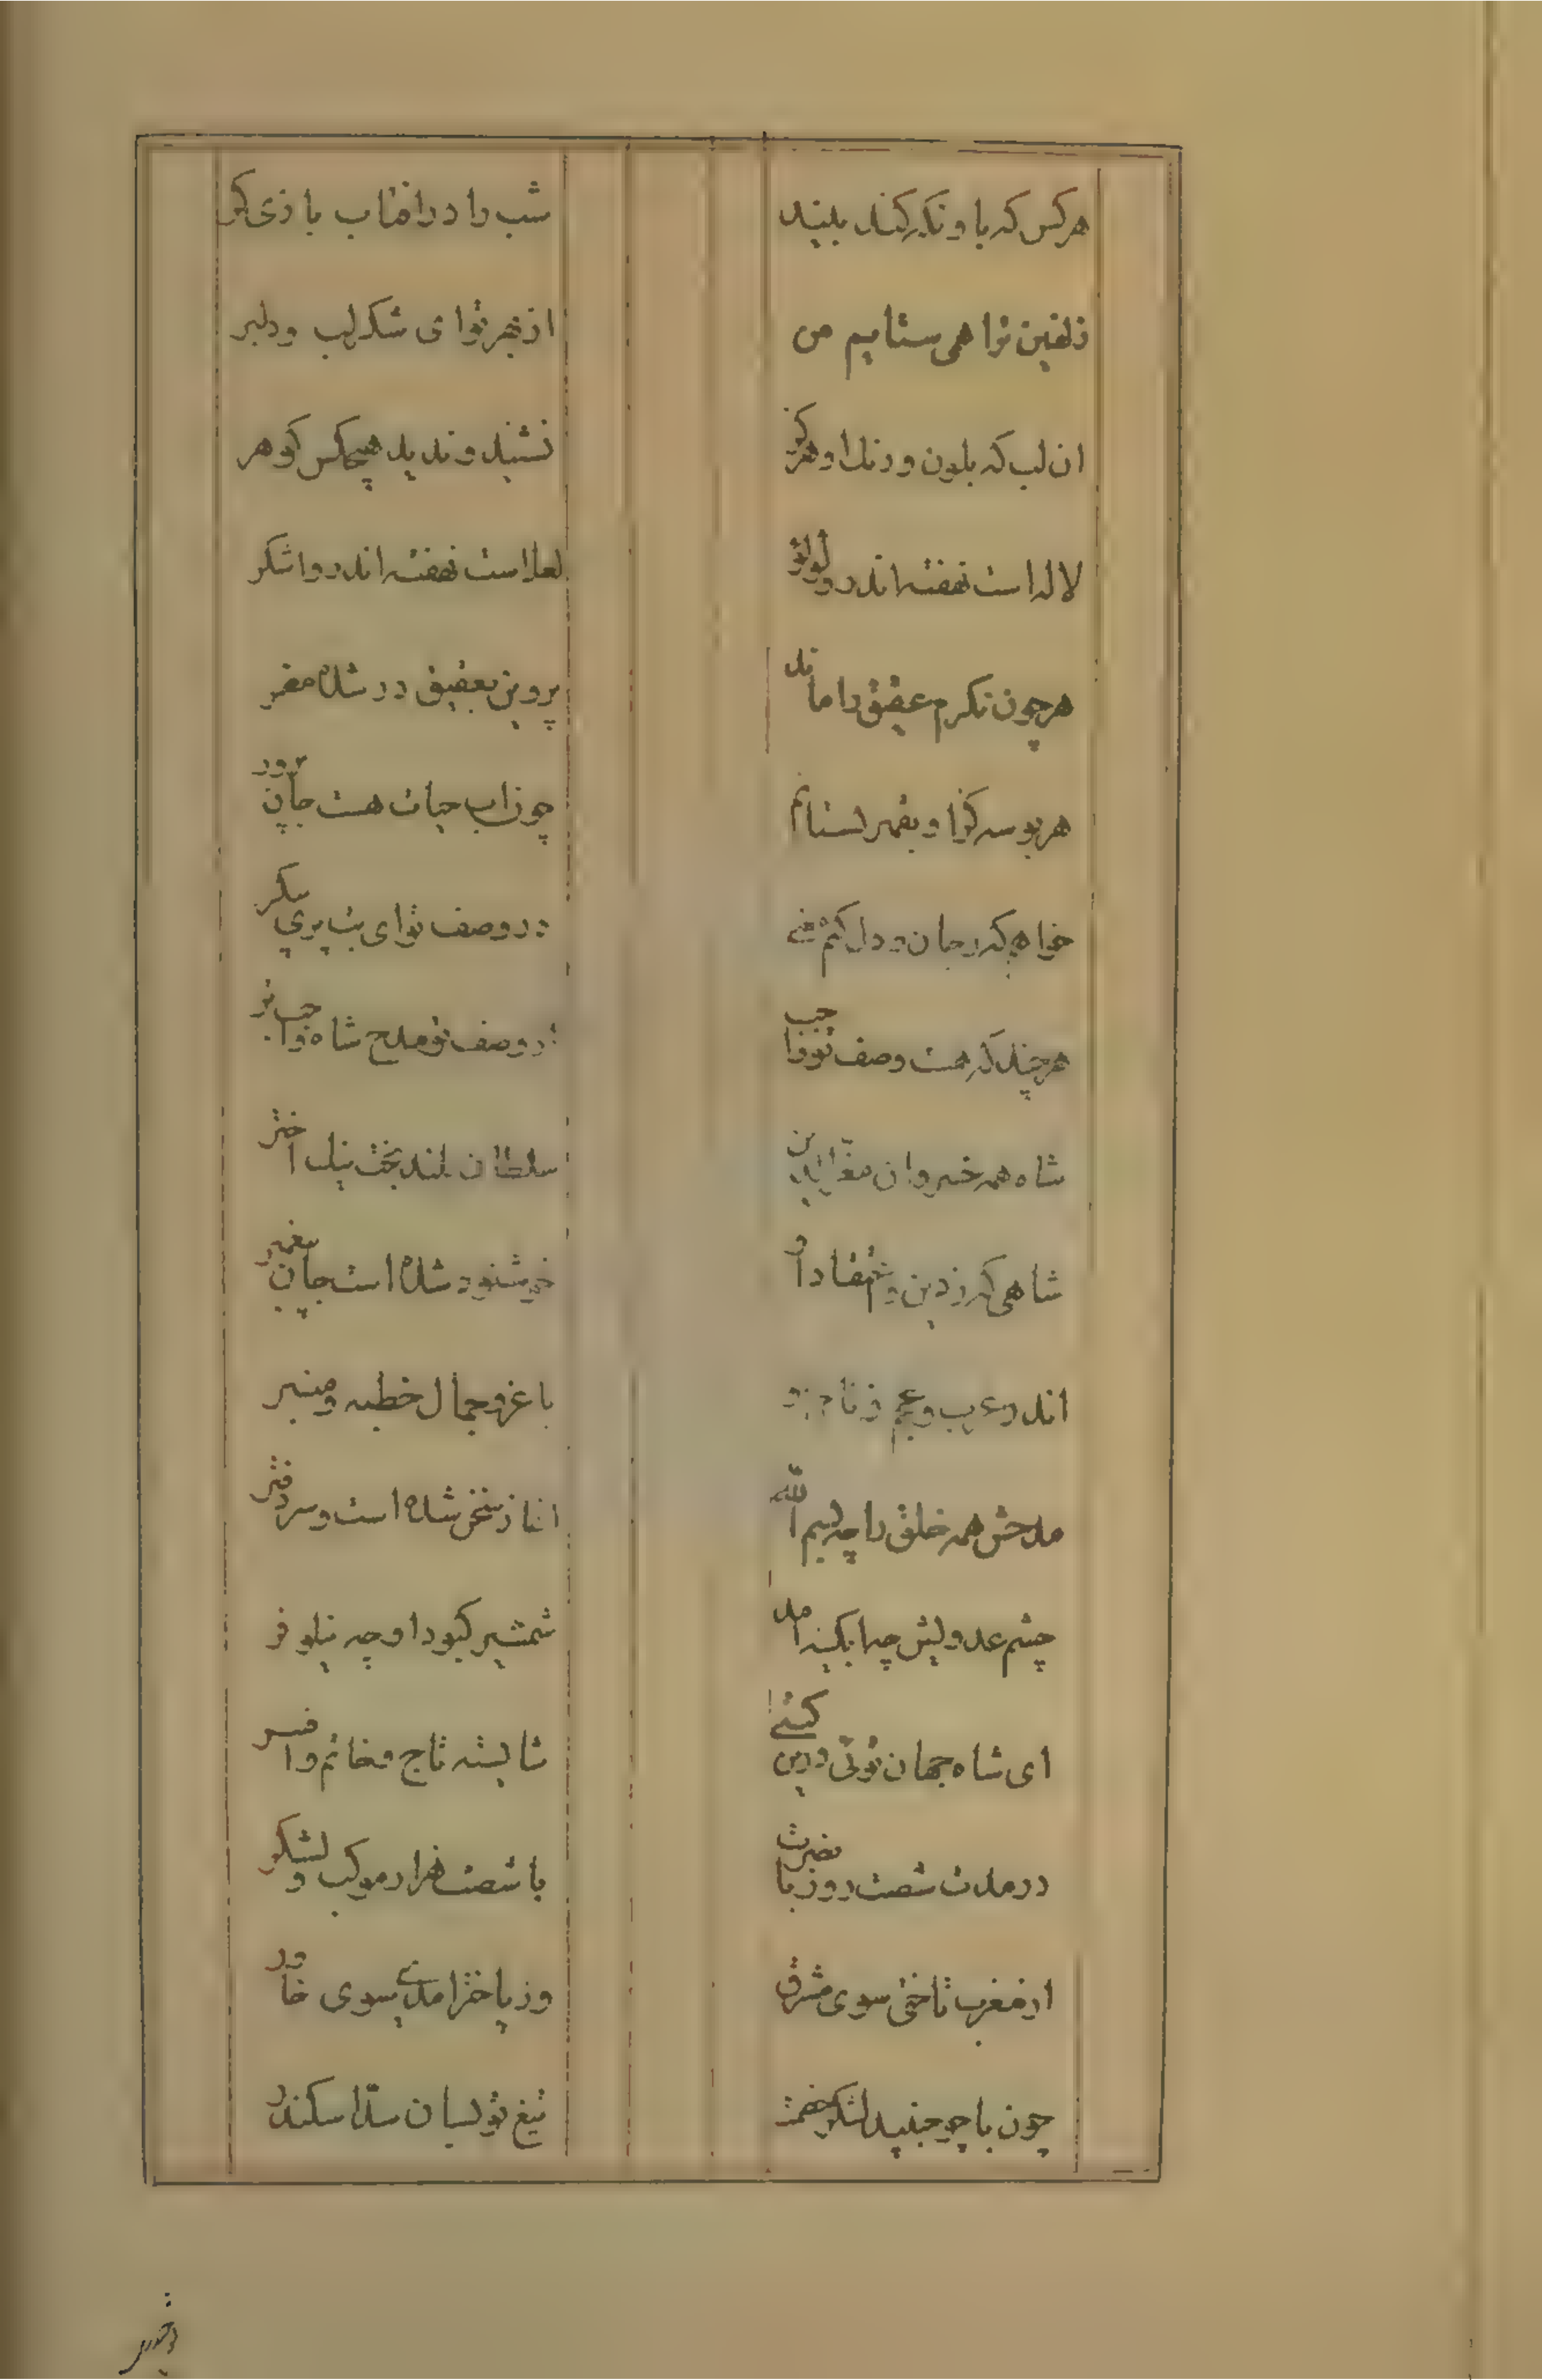 هرکس که باو نکه کند بیند شب را در افتاب بازی کر
زلفین ترا همی ستایم من از بهر تو ای شکر لب و دلبر
ان لب که بلون و رنک او هرکز نشنید و ندید هیچکس کوهر
لاله است نهفته اندرو لولو لعل است نهفته اندرو اشکر
هرچون نکرم عقیق را ماند پروین بعقیق در شده مغمر
هر بوسه کزاو بقهر بستانم چون اب حیات هست جان پرور
خواهم که جان و دل کنم در وصف تو ای بت پری پیکر
هرچند که هست وصف تو واجب از وصف تو مدح شاه واجب تر
شاه همه خسروان سلطان بلند بخت نیک اختر
شاهی که ز دین و او خوشنود شده است جان پیغمبر
اندر عرب و عجم با عز و جمال خطبه و منبر
مدحش همه خلق را چو بسم الله اغاز سخن شده است و سر دفتر
چشم عدویش چه ابکینه امد شمشیر کبود او چه نیلوفر
ای شاه جهان توئی درین کیتی شایسته تاج و خاتم و افسر
در مدت شصت روز با نصرت با شصت هزار موکب و لشکر
از مغرب تاختی سوی مشرق وز باختر امدی بسوی خاور
چون باجوج بجنبید لشکر خصمت تیغ تو بسان سد اسکندر